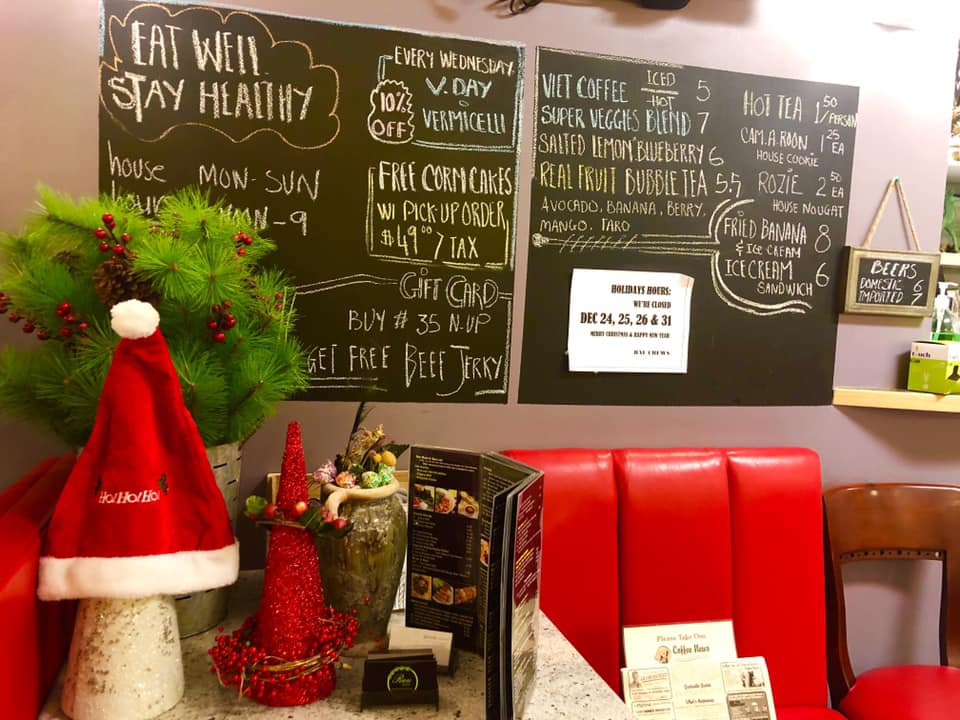 EAT WELL
STAY HEALTHY
house MON-SUN
-9
EVERY WEDNESDAY
V.DAY
VERMICELLI
10%
OFF
FREE CORN CAKES
W/ PICK-UP ORDER
$49.00 / TAX
GIFT CARD
BUY # 35 N-UP
GET FREE BEEF JERKY
VIET COFFEE ICED HOT 5
SUPER VEGGIES BLEND 7
SALTED LEMON BLUEBERRY 6
REAL FRUIT BUBBLE TEA 5.5
AVOCADO, BANANA, BERRY,
MANGO, TARO
HOT TEA 1.50/PERSON
CAM.A.ROON 1.25 EA
HOUSE COOKIE
ROZIE 2.50 EA
HOUSE NOUGAT
FRIED BANANA 8
& ICE CREAM
ICE CREAM 6
SANDWICH
HOLIDAYS HOURS:
WE'RE CLOSED
DEC 24, 25, 26 & 31
MERRY CHRISTMAS & HAPPY NEW YEAR
BEERS
DOMESTIC 6
IMPORTED 7
Ho!Ho!Ho!
Please Take One
Coffee News